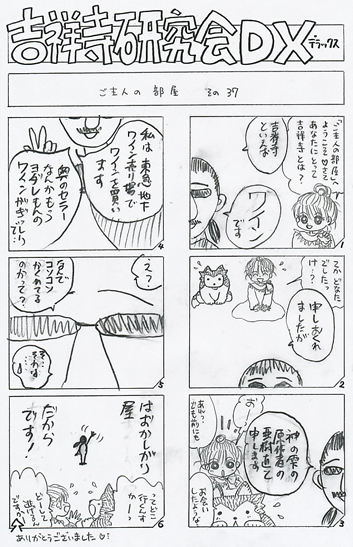 吉祥寺研究会DX
デラックス
ご主人の部屋 その37
「ご主人の部屋」へ
ようこそ♡さて
あなたにとって
吉祥寺とは?
吉祥寺
といえば
ワイン
です
1
てか どなた
でしたっ
け…?
申しおくれ
ましたが
2
神の雫の
原作者の
亜樹直で
申します
お…
あれっ
でも前にも
お会い
したような…
3
私は 東急 地下
ワイン売り場で
ワインを買い
ます
奥のセラー
なんかもう
ヨダレもんの
ワインがぎっしり
で…
4
え?
コソコソ
かくれてる
のかって?
5
はずかしがり
屋
だから
です!
ってどこ
行くんす
かーっ
どして
逃げる
ですか
6
ありがとうございました♡!